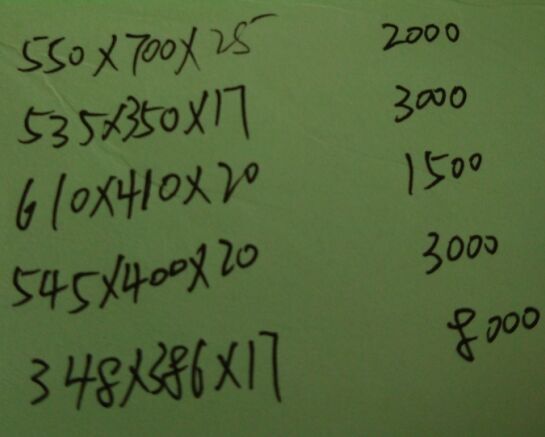 550×700×25 2000
535×350×17 3000
610×410×20 1500
545×400×20 3000
348×386×17 8000